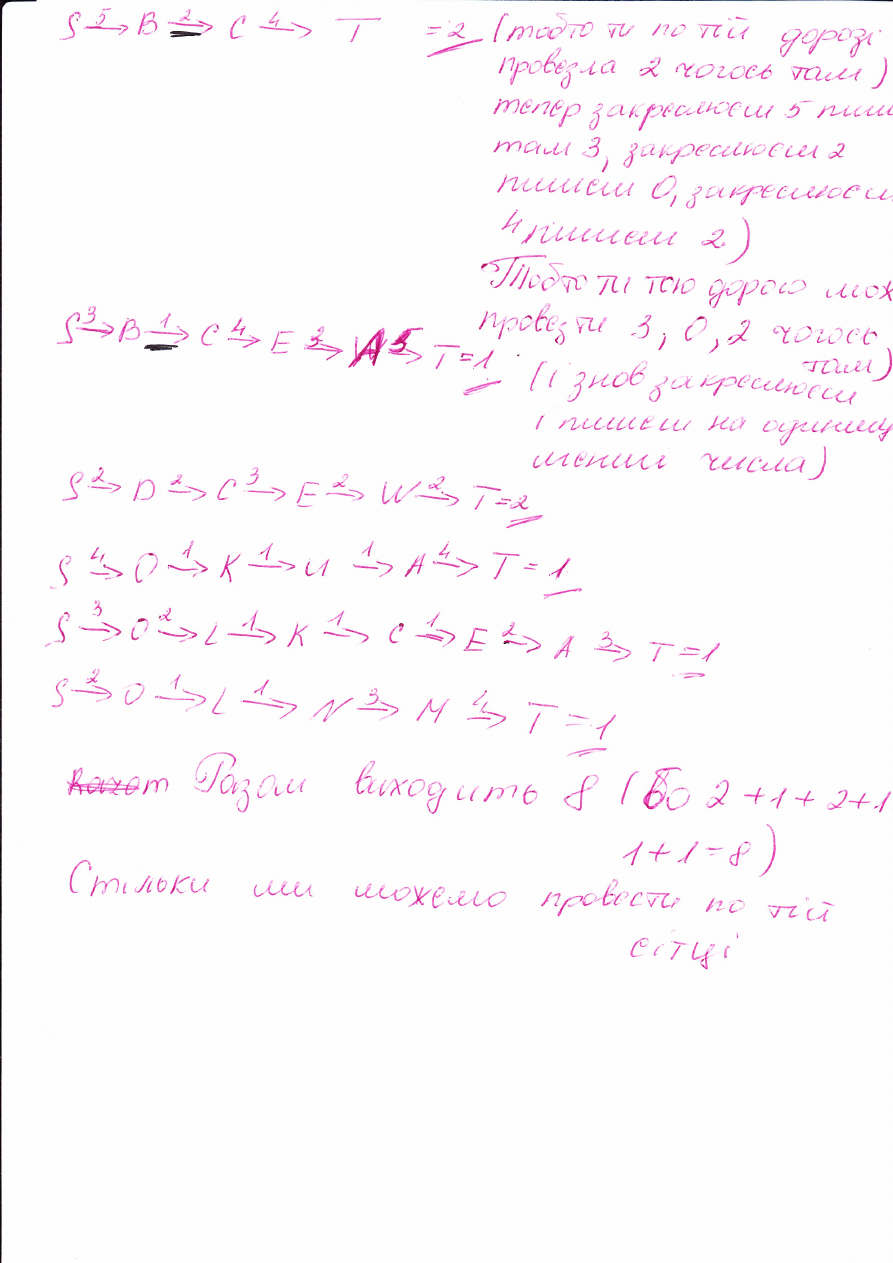 S 5→ B 2→ C 4→ T = 2 (тобто ти по тій дорозі
провезла 2 чогось там)
тепер закреслюєш 5 пиш
там 3, закреслюєш 2
пишеш 0, закреслюєш
4 пишеш 2)
Тобто ти тою дорогою мож
провезти 3, 0, 2 чогось
там)
S 3→ B 1→ C 4→ E 3→ A 5→ T = 1
(і знов закреслюєш
і пишеш на одиницу
менші числа)
S 2→ D 2→ C 3→ E 2→ W 2→ T = 2
S 4→ O 1→ K 1→ U 1→ A 4→ T = 1
S 3→ O 2→ L 1→ K 1→ C 1→ E 2→ A 3→ T = 1
S 2→ O 1→ L 1→ N 3→ M 4→ T = 1
Разом виходить 8 (бо 2+1+2+1
1+1=8)
Стільки ми можемо провести по тій
сітці